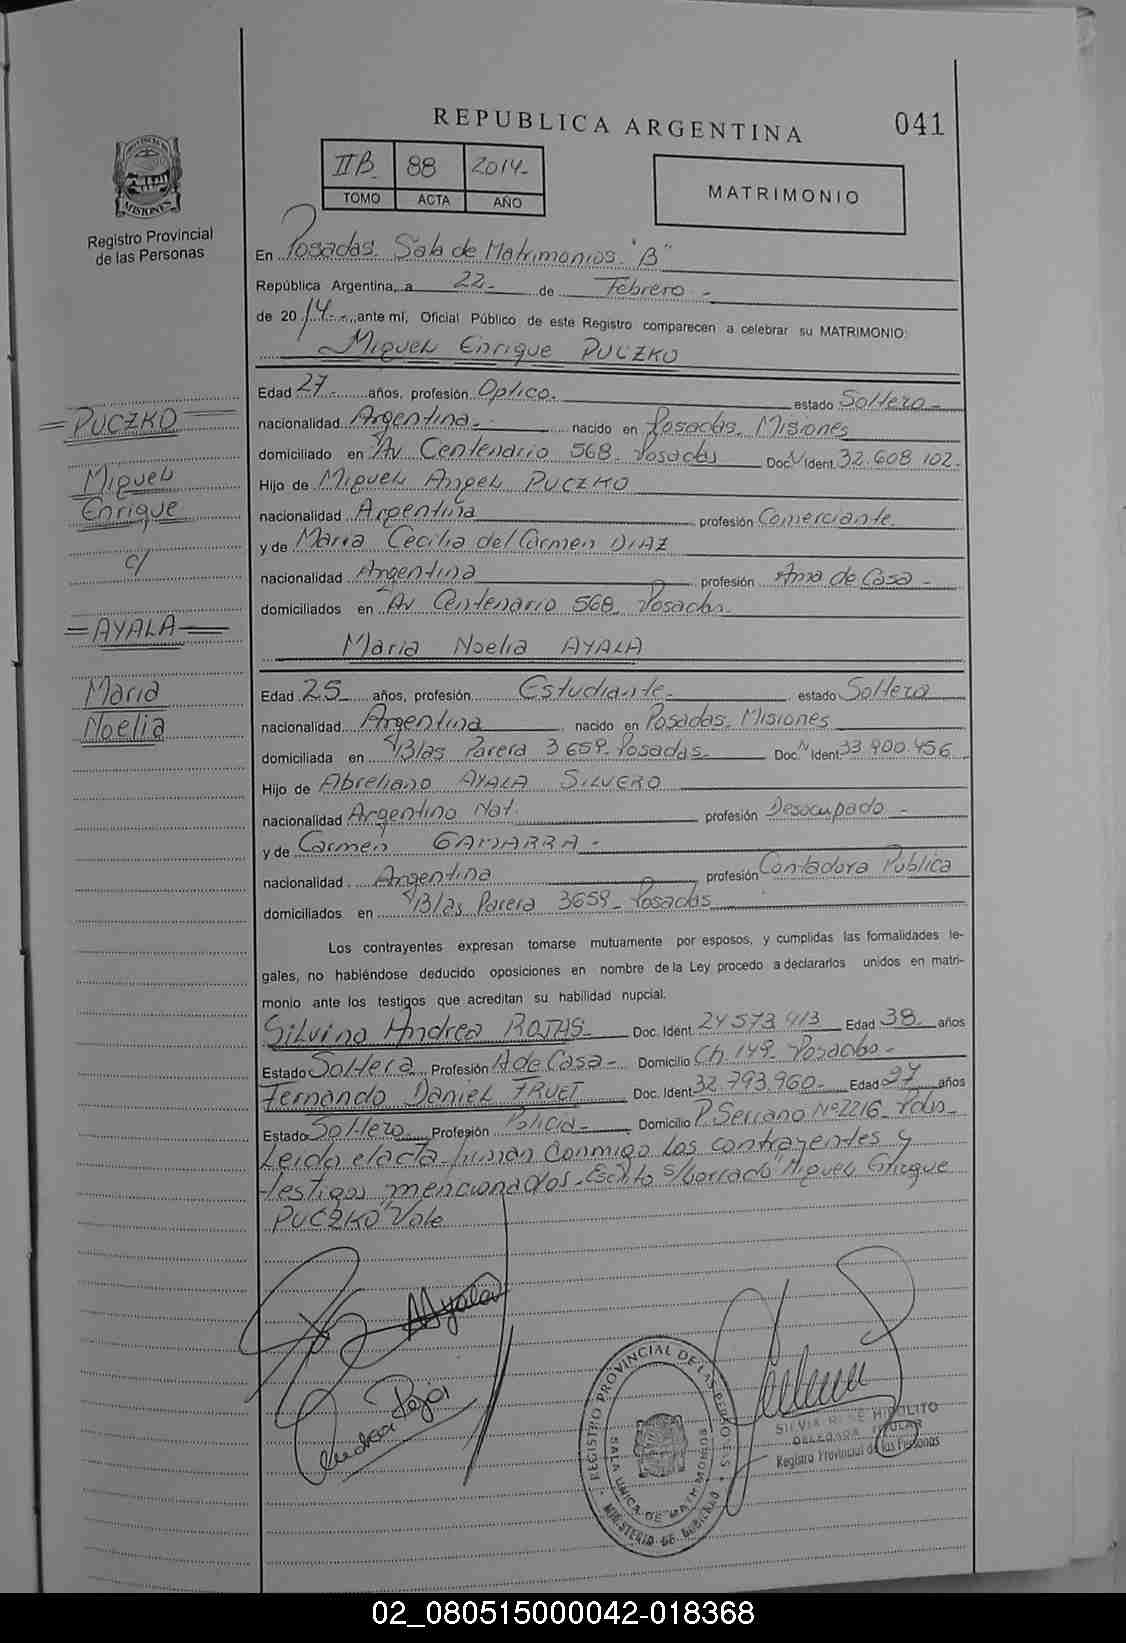 REPUBLICA ARGENTINA
041
IIB 88 2014-
TOMO ACTA AÑO
MATRIMONIO
Registro Provincial
de las Personas
En Posadas. Sala de Matrimonios "B"
República Argentina, a 22- de Febrero -
de 2014- ante mí, Oficial Público de este Registro comparecen a celebrar su MATRIMONIO:
Miguel Enrique PUCZKO
Edad 27- años, profesión Optico. estado Soltero-
nacionalidad Argentina- nacido en Posadas, Misiones
domiciliado en Av Centenario 568- Posadas Doc. N Ident. 32.608.102.
Hijo de Miguel Angel PUCZKO
nacionalidad Argentina profesión Comerciante.
y de Maria Cecilia del Carmen DIAZ
nacionalidad Argentina profesión Ama de Casa -
domiciliados en Av Centenario 568- Posadas-
Maria Noelia AYALA
Edad 25 años, profesión Estudiante- estado Soltera
nacionalidad Argentina nacido en Posadas, Misiones
domiciliada en S/Blas Parera 3659- Posadas- Doc. N Ident. 33.900.456
Hijo de Abreliano AYALA SILVERO
nacionalidad Argentino Nat. profesión Desocupado -
y de Carmen GAMARRA -
nacionalidad Argentina profesión Contadora Publica
domiciliados en S/Blas Parera 3659- Posadas
Los contrayentes expresan tomarse mutuamente por esposos, y cumplidas las formalidades le-
gales, no habiéndose deducido oposiciones en nombre de la Ley procedo a declararlos unidos en matri-
monio ante los testigos que acreditan su habilidad nupcial.
Silvina Andrea ROJAS- Doc. Ident. 24573.413 Edad 38 años
Estado Soltera Profesión A de Casa - Domicilio Ch. 149- Posadas -
Fernando Daniel FRUET Doc. Ident. 32.793.960- Edad 27 años
Estado Soltero Profesión Policia- Domicilio P. Serrano Nº 2216- Pdas-
Leida el acta firman conmigo los contrayentes y
testigos mencionados. Escrito s/borrado "Miguel Enrique
PUCZKO" Vale
=PUCZKO=
Miguel
Enrique
c/
=AYALA=
Maria
Noelia
Ayala
Andrea Rojas
REGISTRO PROVINCIAL DE LAS PERSONAS
SALA UNICA DE MATRIMONIOS
MINISTERIO DE GOBIERNO
SILVIA RENE HIPOLITO
DELEGADA TITULAR
Registro Provincial de las Personas
02_080515000042-018368